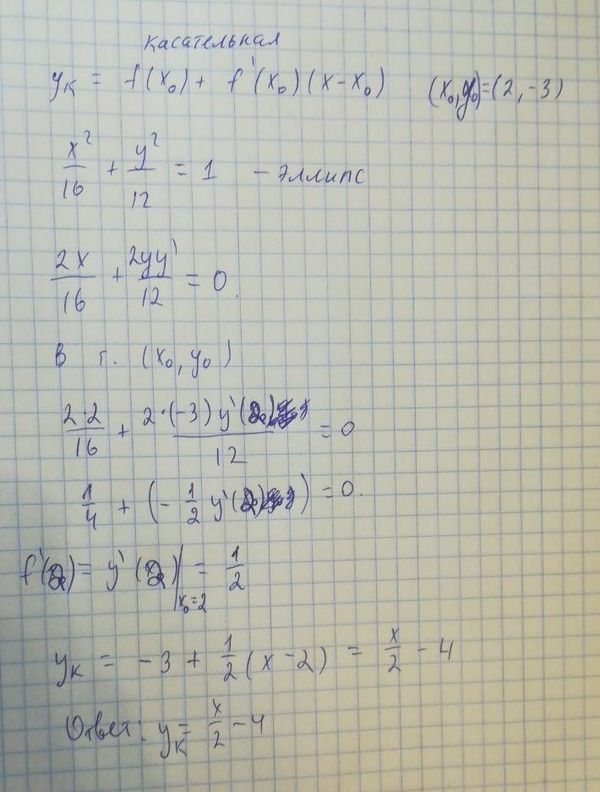 касательная
yк = f(x₀) + f'(x₀)(x-x₀) (x₀,y₀)=(2,-3)
x²/16 + y²/12 = 1 - эллипс
2x/16 + 2yy'/12 = 0.
в т. (x₀, y₀)
2·2/16 + 2·(-3)y'(2)/12 = 0
1/4 + (-1/2 y'(2)) = 0.
f'(2) = y'(2)|x₀=2 = 1/2
yк = -3 + 1/2(x-2) = x/2 - 4
Ответ: yк = x/2 - 4